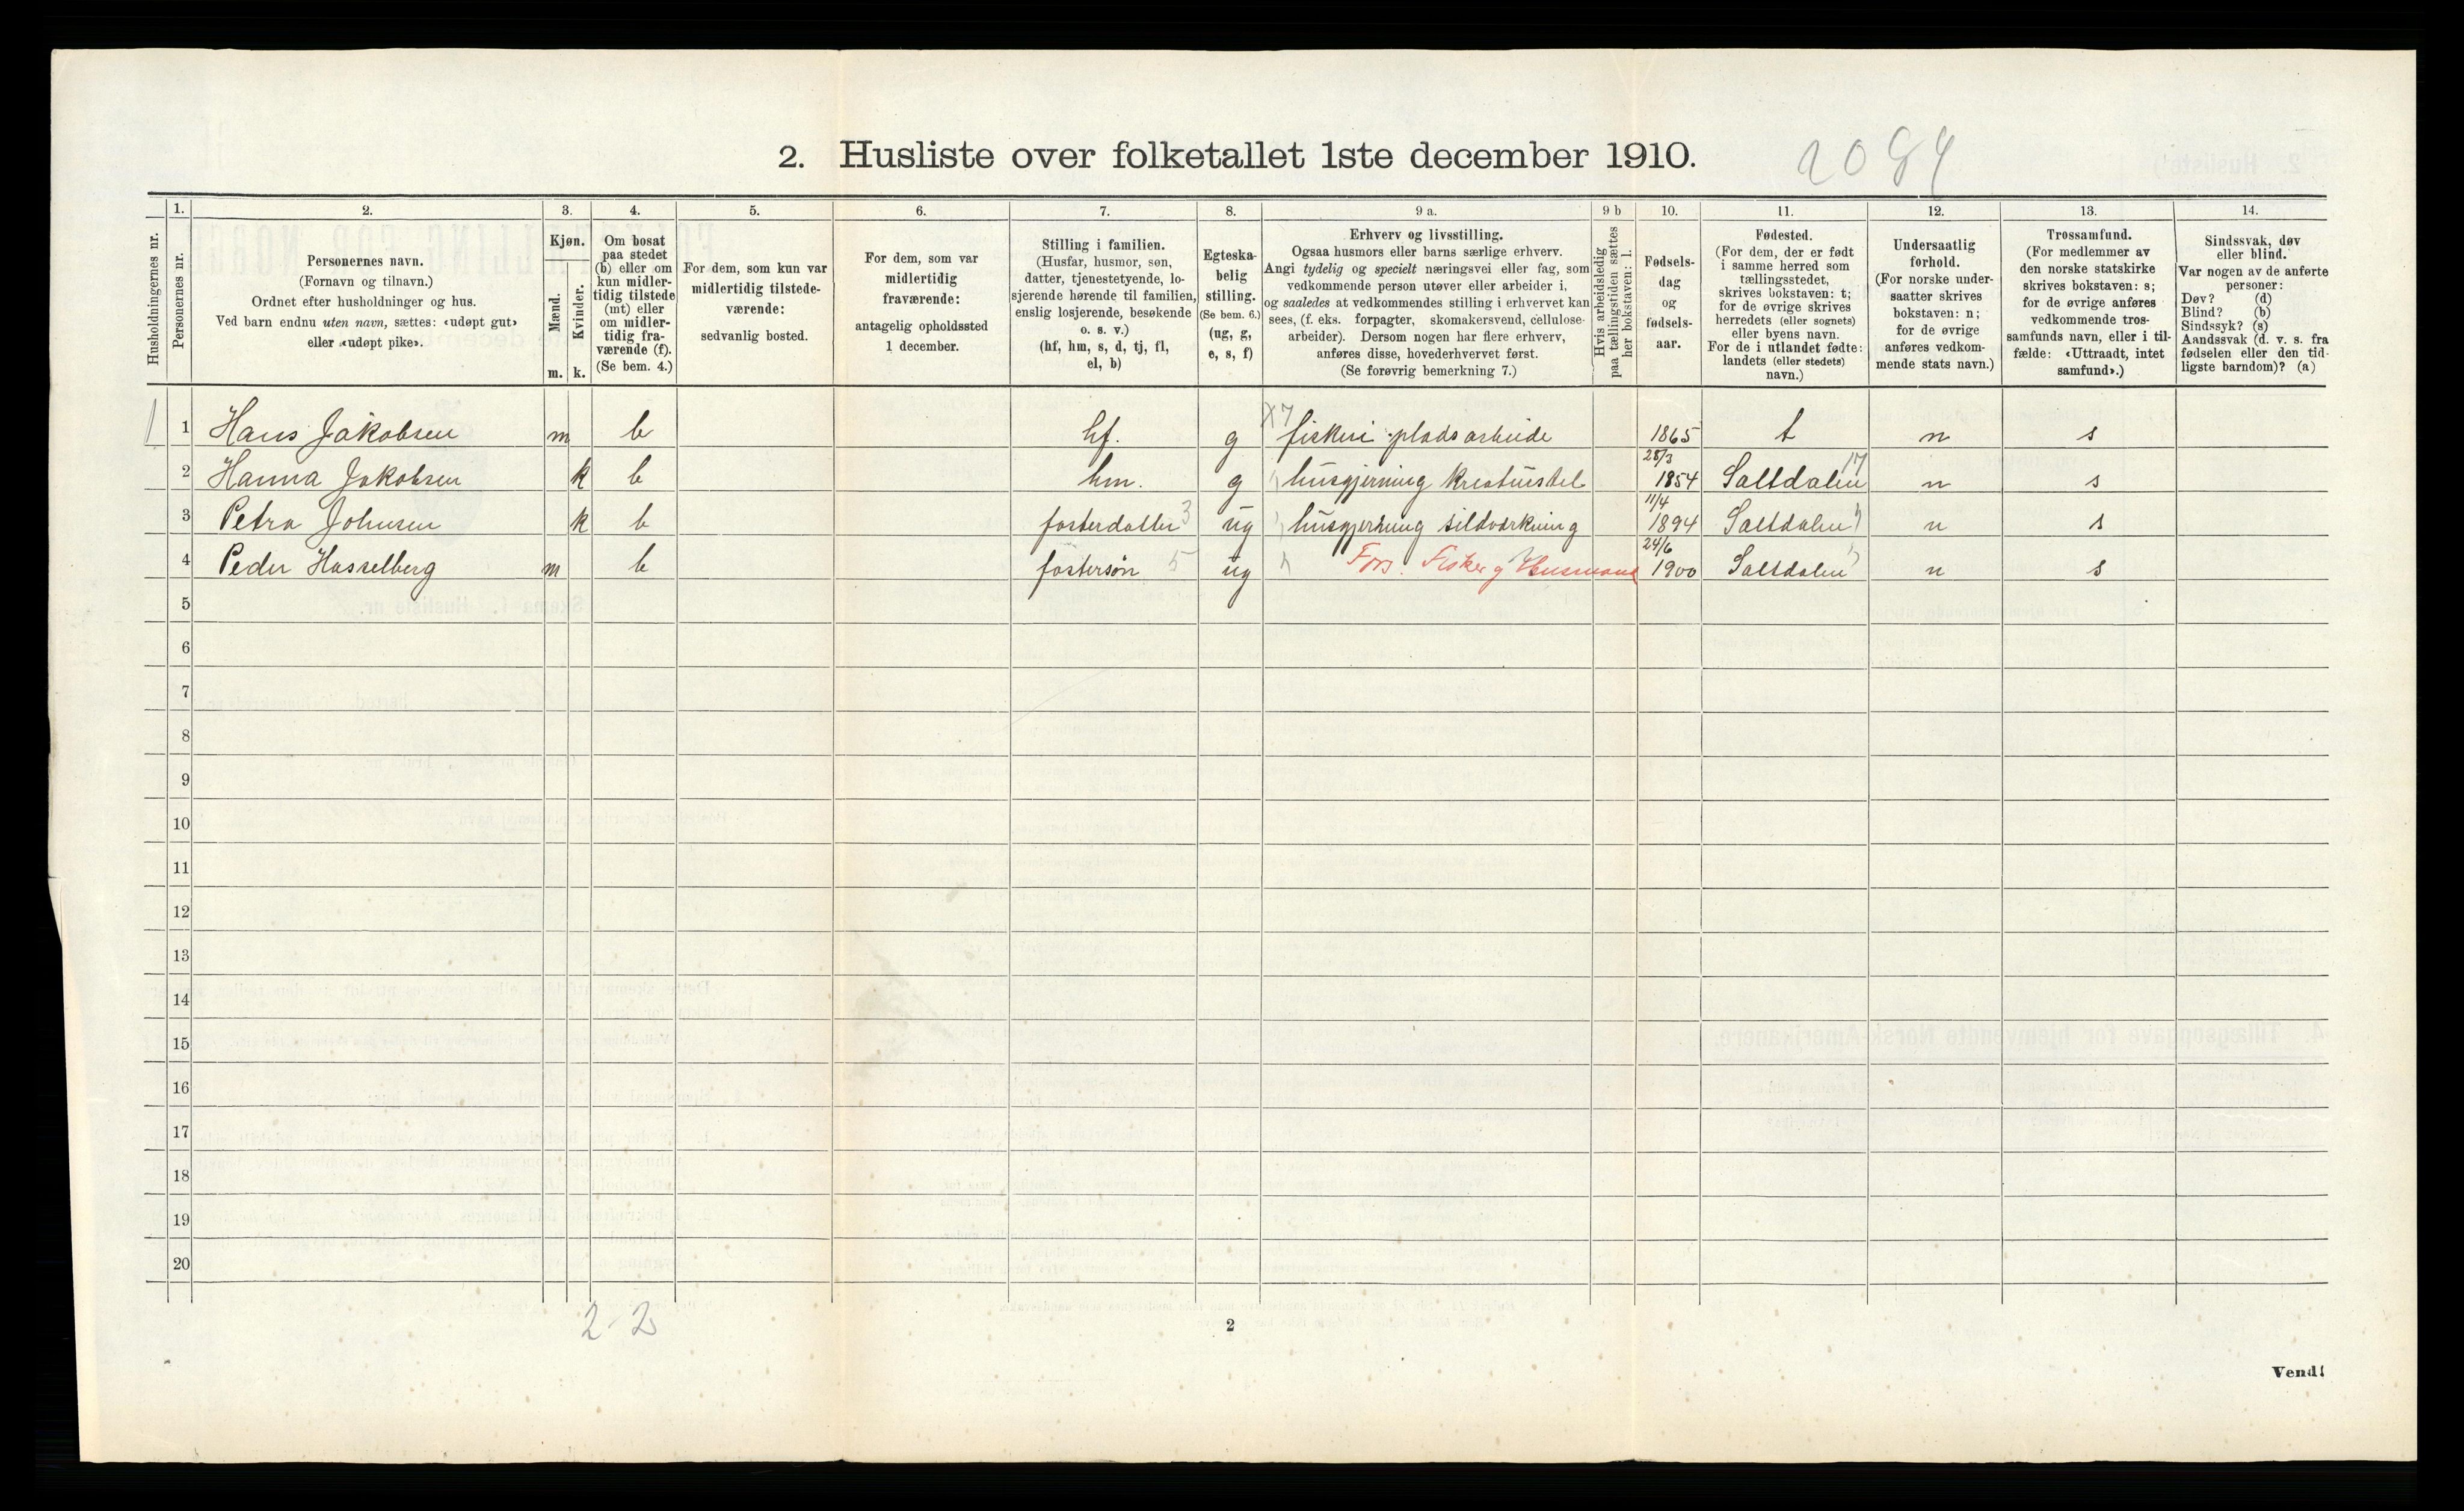 2. Husliste over folketallet 1ste december 1910.
2084
1. 2. 3. 4. 5. 6. 7. 8. 9 a. 9 b 10. 11. 12. 13. 14.
Husholdningernes nr.
Personernes nr.
Personernes navn.
(Fornavn og tilnavn.)
Ordnet efter husholdninger og hus.
Ved barn endnu uten navn, sættes: «udøpt gut»
eller «udøpt pike».
Kjøn.
Mænd.
Kvinder.
m. k.
Om bosat
paa stedet
(b) eller om
kun midler-
tidig tilstede
(mt) eller
om midler-
tidig fra-
værende (f).
(Se bem. 4.)
For dem, som kun var
midlertidig tilstede-
værende:
sedvanlig bosted.
For dem, som var
midlertidig
fraværende:
antagelig opholdssted
1 december.
Stilling i familien.
(Husfar, husmor, søn,
datter, tjenestetyende, lo-
sjerende hørende til familien,
enslig losjerende, besøkende
o. s. v.)
(hf, hm, s, d, tj, fl,
el, b)
Egteska-
belig
stilling.
(Se bem. 6.)
(ug, g,
e, s, f)
Erhverv og livsstilling.
Ogsaa husmors eller barns særlige erhverv.
Angi tydelig og specielt næringsvei eller fag, som
vedkommende person utøver eller arbeider i,
og saaledes at vedkommendes stilling i erhvervet kan
sees, (f. eks. forpagter, skomakersvend, cellulose-
arbeider). Dersom nogen har flere erhverv,
anføres disse, hovederhvervet først.
(Se forøvrig bemerkning 7.)
Hvis arbeidsledig
paa tællingstiden sættes
her bokstaven: l.
Fødsels-
dag
og
fødsels-
aar.
Fødested.
(For dem, der er født
i samme herred som
tællingsstedet,
skrives bokstaven: t;
for de øvrige skrives
herredets (eller sognets)
eller byens navn.
For de i utlandet fødte:
landets (eller stedets)
navn.)
Undersaatlig
forhold.
(For norske under-
saatter skrives
bokstaven: n;
for de øvrige
anføres vedkom-
mende stats navn.)
Trossamfund.
(For medlemmer av
den norske statskirke
skrives bokstaven: s;
for de øvrige anføres
vedkommende tros-
samfunds navn, eller i til-
fælde: «Uttraadt, intet
samfund».)
Sindssvak, døv
eller blind.
Var nogen av de anførte
personer:
Døv? (d)
Blind? (b)
Sindssyk? (s)
Aandssvak (d. v. s. fra
fødselen eller den tid-
ligste barndom)? (a)
1 1 Hans Jakobsen m b hf. g X7 fiskeri pladsarbeide 1865 t n s
2 Hanna Jakobsen k b hm. g husgjerning kreaturstel 25/3 1854 Saltdalen 17 n s
3 Petra Johnsen k b fosterdatter 3 ug husgjerning sildvirkning 11/4 1894 Saltdalen n s
4 Peder Hasselberg m b fostersøn 5 ug Fors. Fisker g Husmand 24/6 1900 Saltdalen n s
5
6
7
8
9
10
11
12
13
14
15
16
17
18
19
20
2-2
2
Vend!